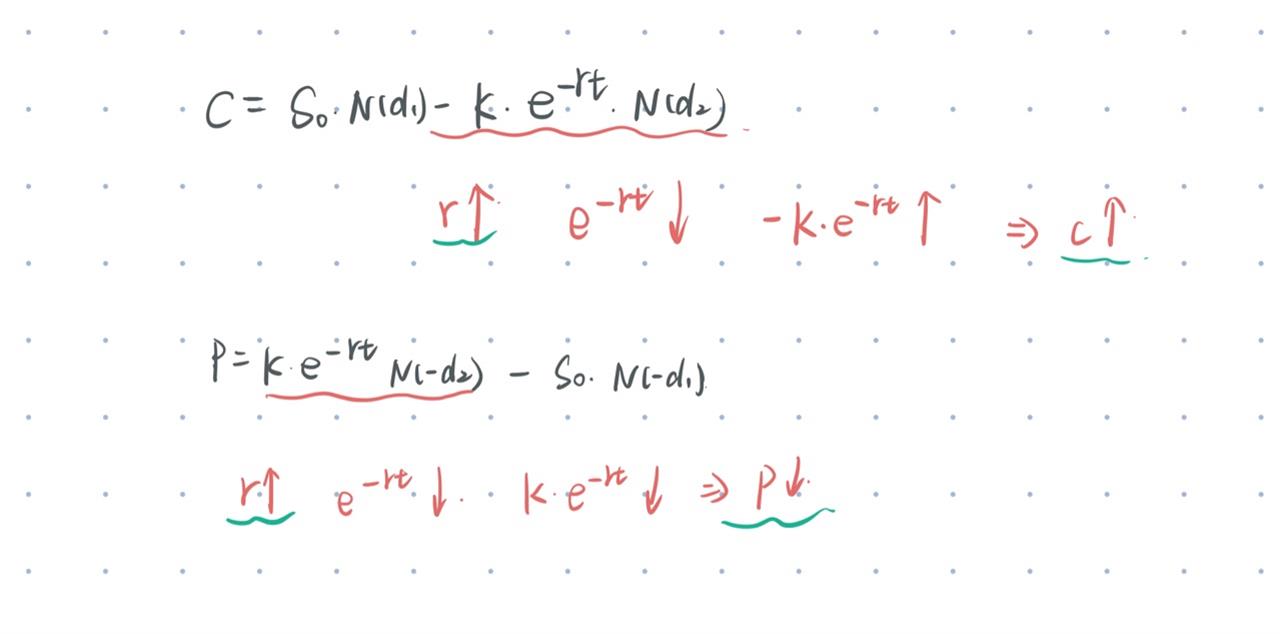 C = S₀ · N(d₁) - k · e^{-rt} · N(d₂)
r↑ e^{-rt}↓ -k·e^{-rt}↑ ⇒ c↑
P = k·e^{-rt} N(-d₂) - S₀· N(-d₁)
r↑ e^{-rt}↓ k·e^{-rt}↓ ⇒ P↓